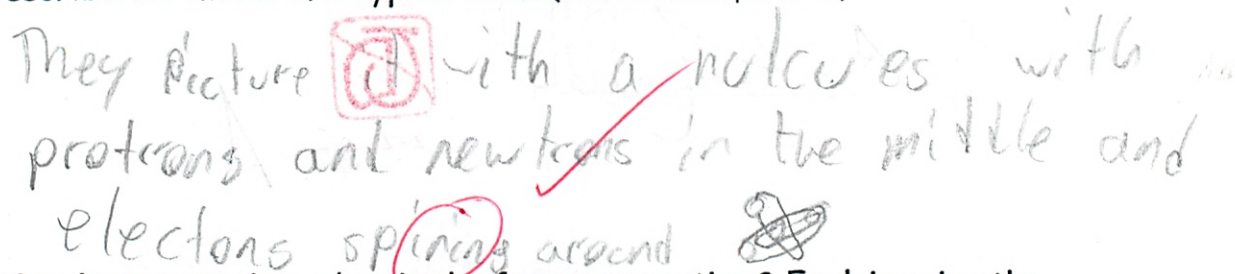 They picture it with a nulcues with
protrons and newtrons in the middle and
electons spining around